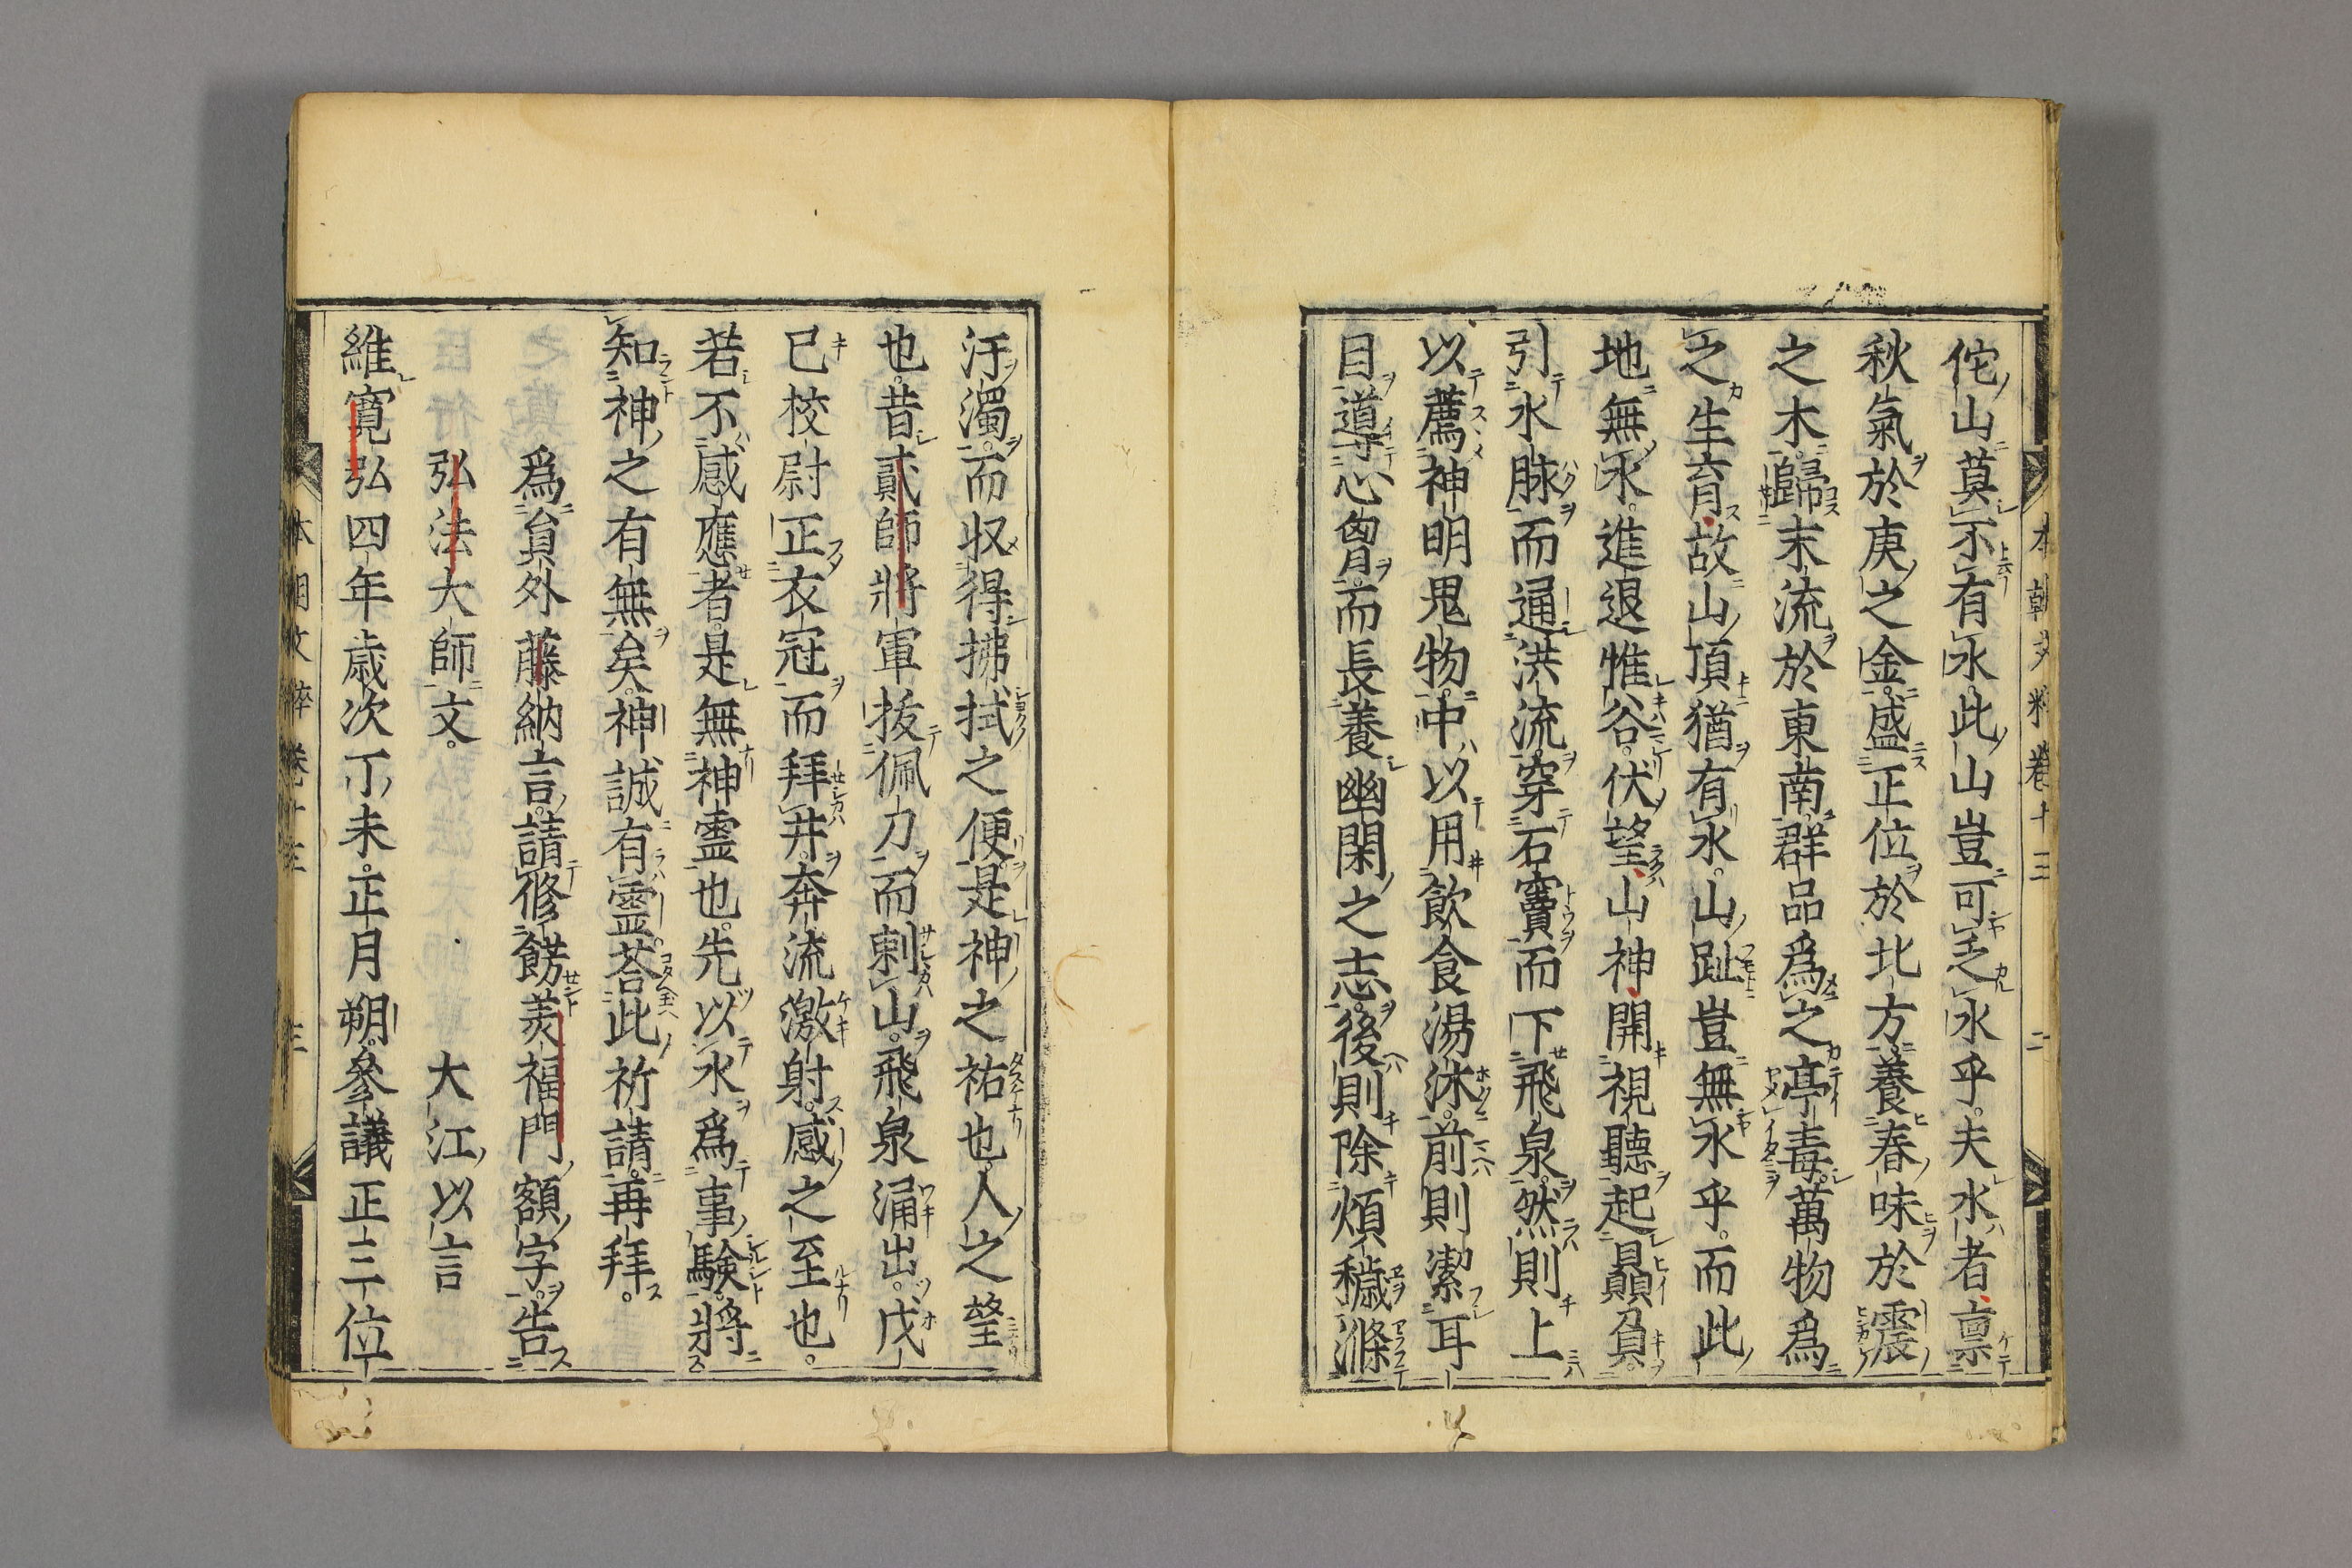 本朝文粹卷十三 二
佗山莫不有水此山豈可乏水乎夫水者稟
秋氣於庚之金盛正位於北方養春味於震
之木歸末流於東南群品爲之亭毒萬物爲
之生育故山頂猶有水山趾豈無水乎而此
地無水進退惟谷伏望山神開視聽起贔屓
引水脉而通洪流穿石竇而下飛泉然則上
以薦神明鬼物中以用飮食湯沐前則潔耳
目導心胷而長養幽閑之志後則除煩穢滌
汙濁而収得拂拭之便是神之祐也人之望
也昔貳師將軍拔佩刀而刺山飛泉涌出戊
已校尉正衣冠而拜井奔流激射感之至也
若不感應者是無神靈也先以水爲事驗將
知神之有無矣神誠有靈荅此祈請再拜
爲員外藤納言請修餝美福門額字告
弘法大師文 大江以言
維寛弘四年歳次丁未正月朔參議正三位
本朝文粹卷十三 三